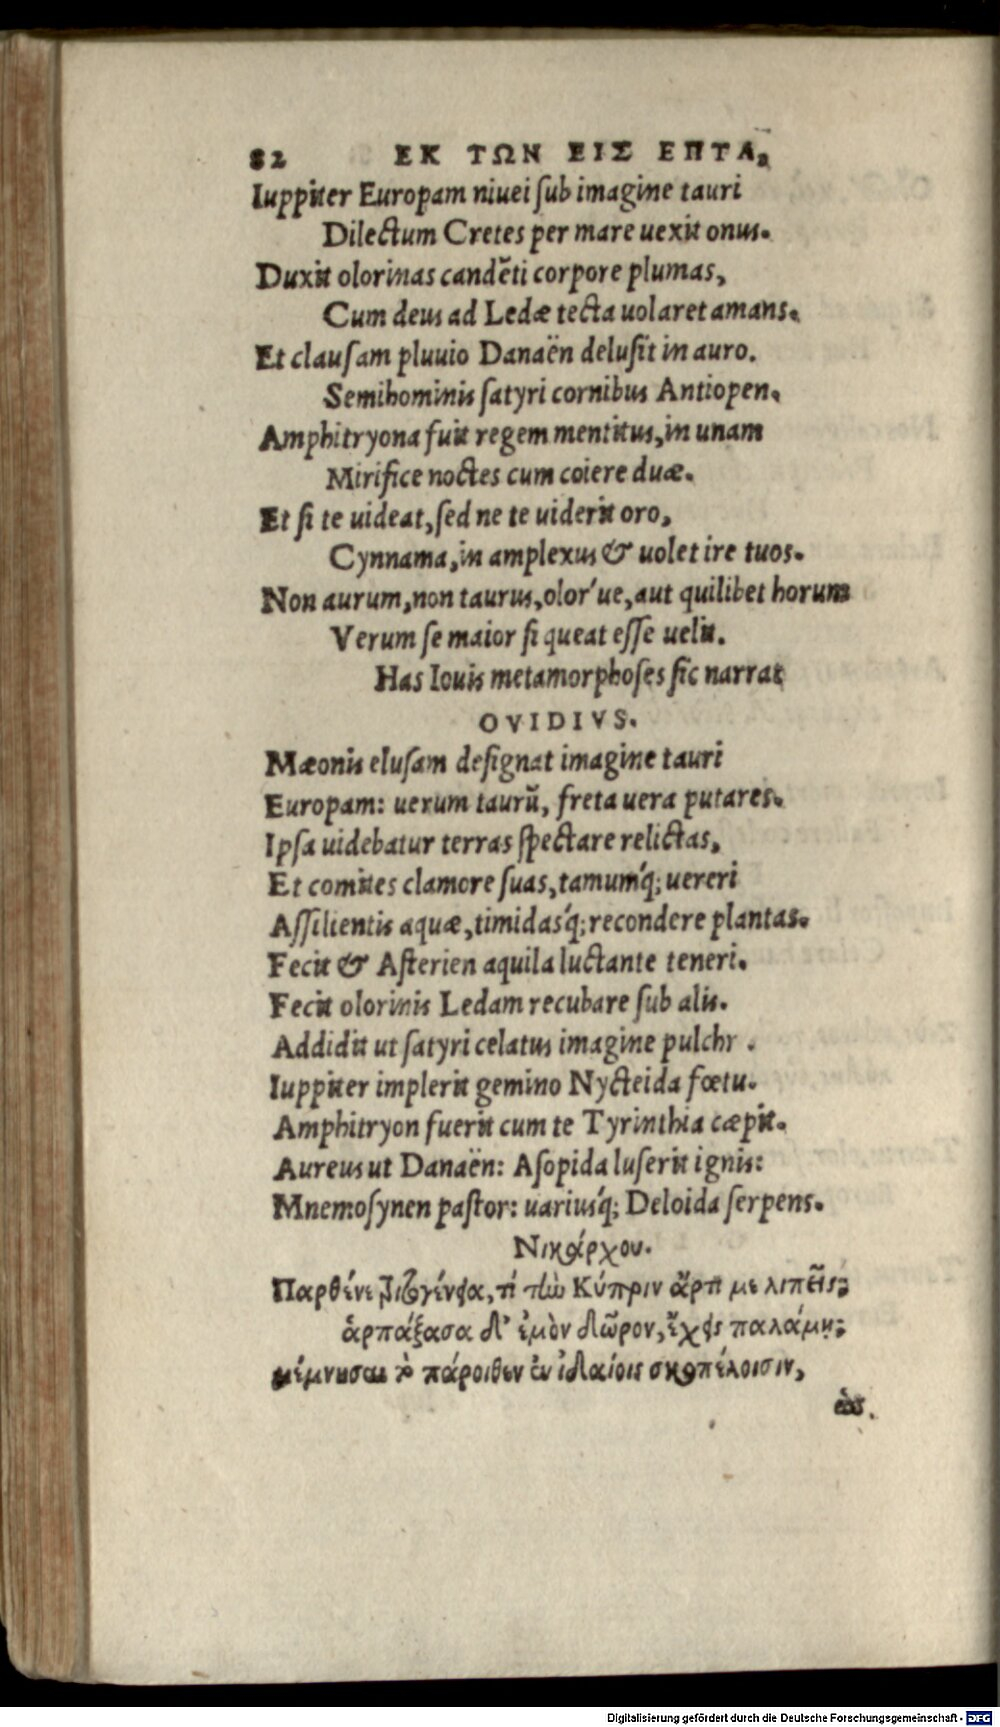 82 ΕΚ ΤΩΝ ΕΙΣ ΕΠΤΑ,
Iuppiter Europam niuei ſub imagine tauri
Dilectum Cretes per mare uexit onus.
Duxit olorinas candẽti corpore plumas,
Cum deus ad Ledæ tecta uolaret amans.
Et clauſam pluuio Danaën deluſit in auro.
Semihominis ſatyri cornibus Antiopen.
Amphitryona fuit regem mentitus, in unam
Mirifice noctes cum coiere duæ.
Et ſi te uideat, ſed ne te uiderit oro,
Cynnama, in amplexus & uolet ire tuos.
Non aurum, non taurus, olor'ue, aut quilibet horum
Verum ſe maior ſi queat eſſe uelit.
Has Iouis metamorphoſes ſic narrat
OVIDIVS.
Mæonis eluſam deſignat imagine tauri
Europam: uerum taurũ, freta uera putares.
Ipſa uidebatur terras ſpectare relictas,
Et comites clamore ſuas, tamumq́; uereri
Aſſilientis aquæ, timidasq́; recondere plantas.
Fecit & Aſterien aquila luctante teneri.
Fecit olorinis Ledam recubare ſub alis.
Addidit ut ſatyri celatus imagine pulchr .
Iuppiter implerit gemino Nycteida fœtu.
Amphitryon fuerit cum te Tyrinthia cæpit.
Aureus ut Danaën: Aſopida luſerit ignis:
Mnemoſynen paſtor: uariusq́; Deloida ſerpens.
Νικάρχου.
Παρθένε τὴν Κύπριν ἄρτι με λιπεῖς;
ἁρπάξασα δ' ἐμὸν δῶρον, ἔχεις παλάμῃ;
μέμνησαι τὸ πάροιθεν ἐν ἰδαίοις σκοπέλοισιν,
ὡς.
Digitalisierung gefördert durch die Deutsche Forschungsgemeinschaft - DFG